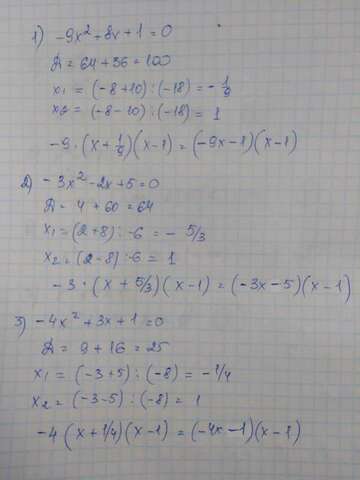 1) -9x² + 8x + 1 = 0
D = 64 + 36 = 100
x₁ = (-8+10) : (-18) = - 1/9
x₂ = (-8-10) : (-18) = 1
-9 · (x + 1/9)(x-1) = (-9x-1)(x-1)
2) -3x² - 2x + 5 = 0
D = 4 + 60 = 64
x₁ = (2+8) : -6 = - 5/3
x₂ = (2-8) : -6 = 1
-3 · (x + 5/3)(x-1) = (-3x-5)(x-1)
3) -4x² + 3x + 1 = 0
D = 9 + 16 = 25
x₁ = (-3+5) : (-8) = -1/4
x₂ = (-3-5) : (-8) = 1
-4 (x + 1/4)(x-1) = (-4x-1)(x-1)